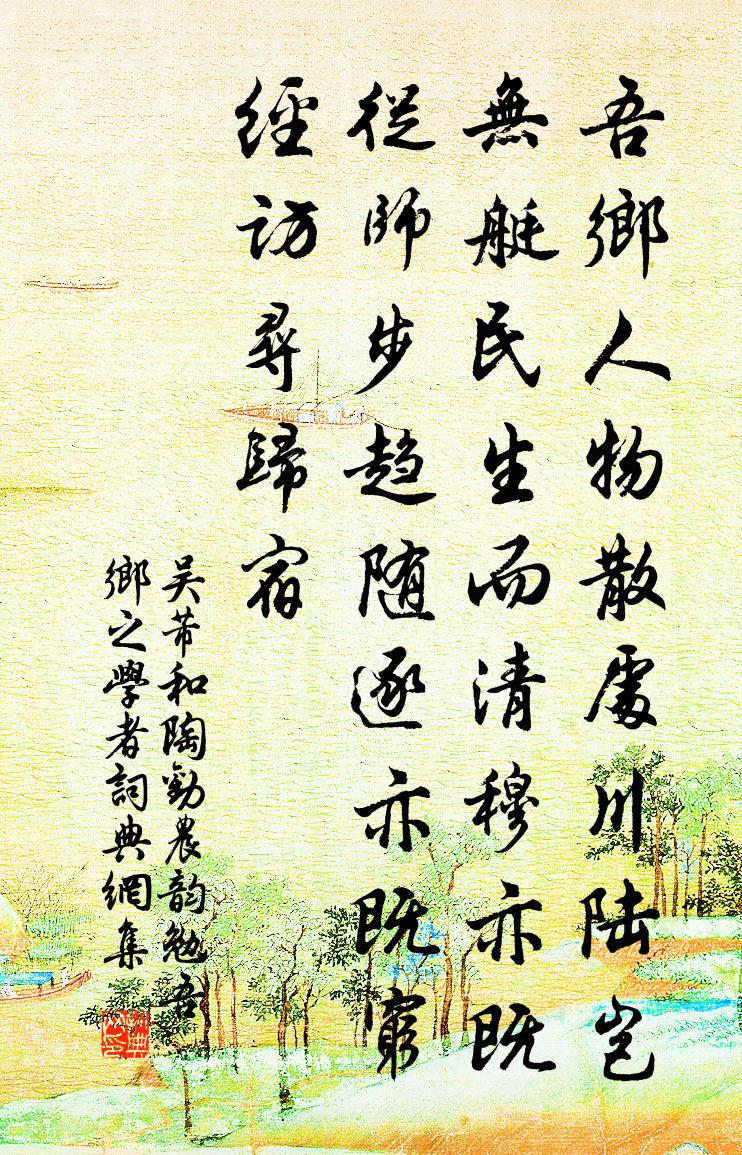 吾鄉人物散處川陸豈
無艇民生而清穆亦既
從師步趨随逐亦既窮
經訪尋歸宿
吴芾和陶勸農韵勉吾
鄉之學者詞典網集